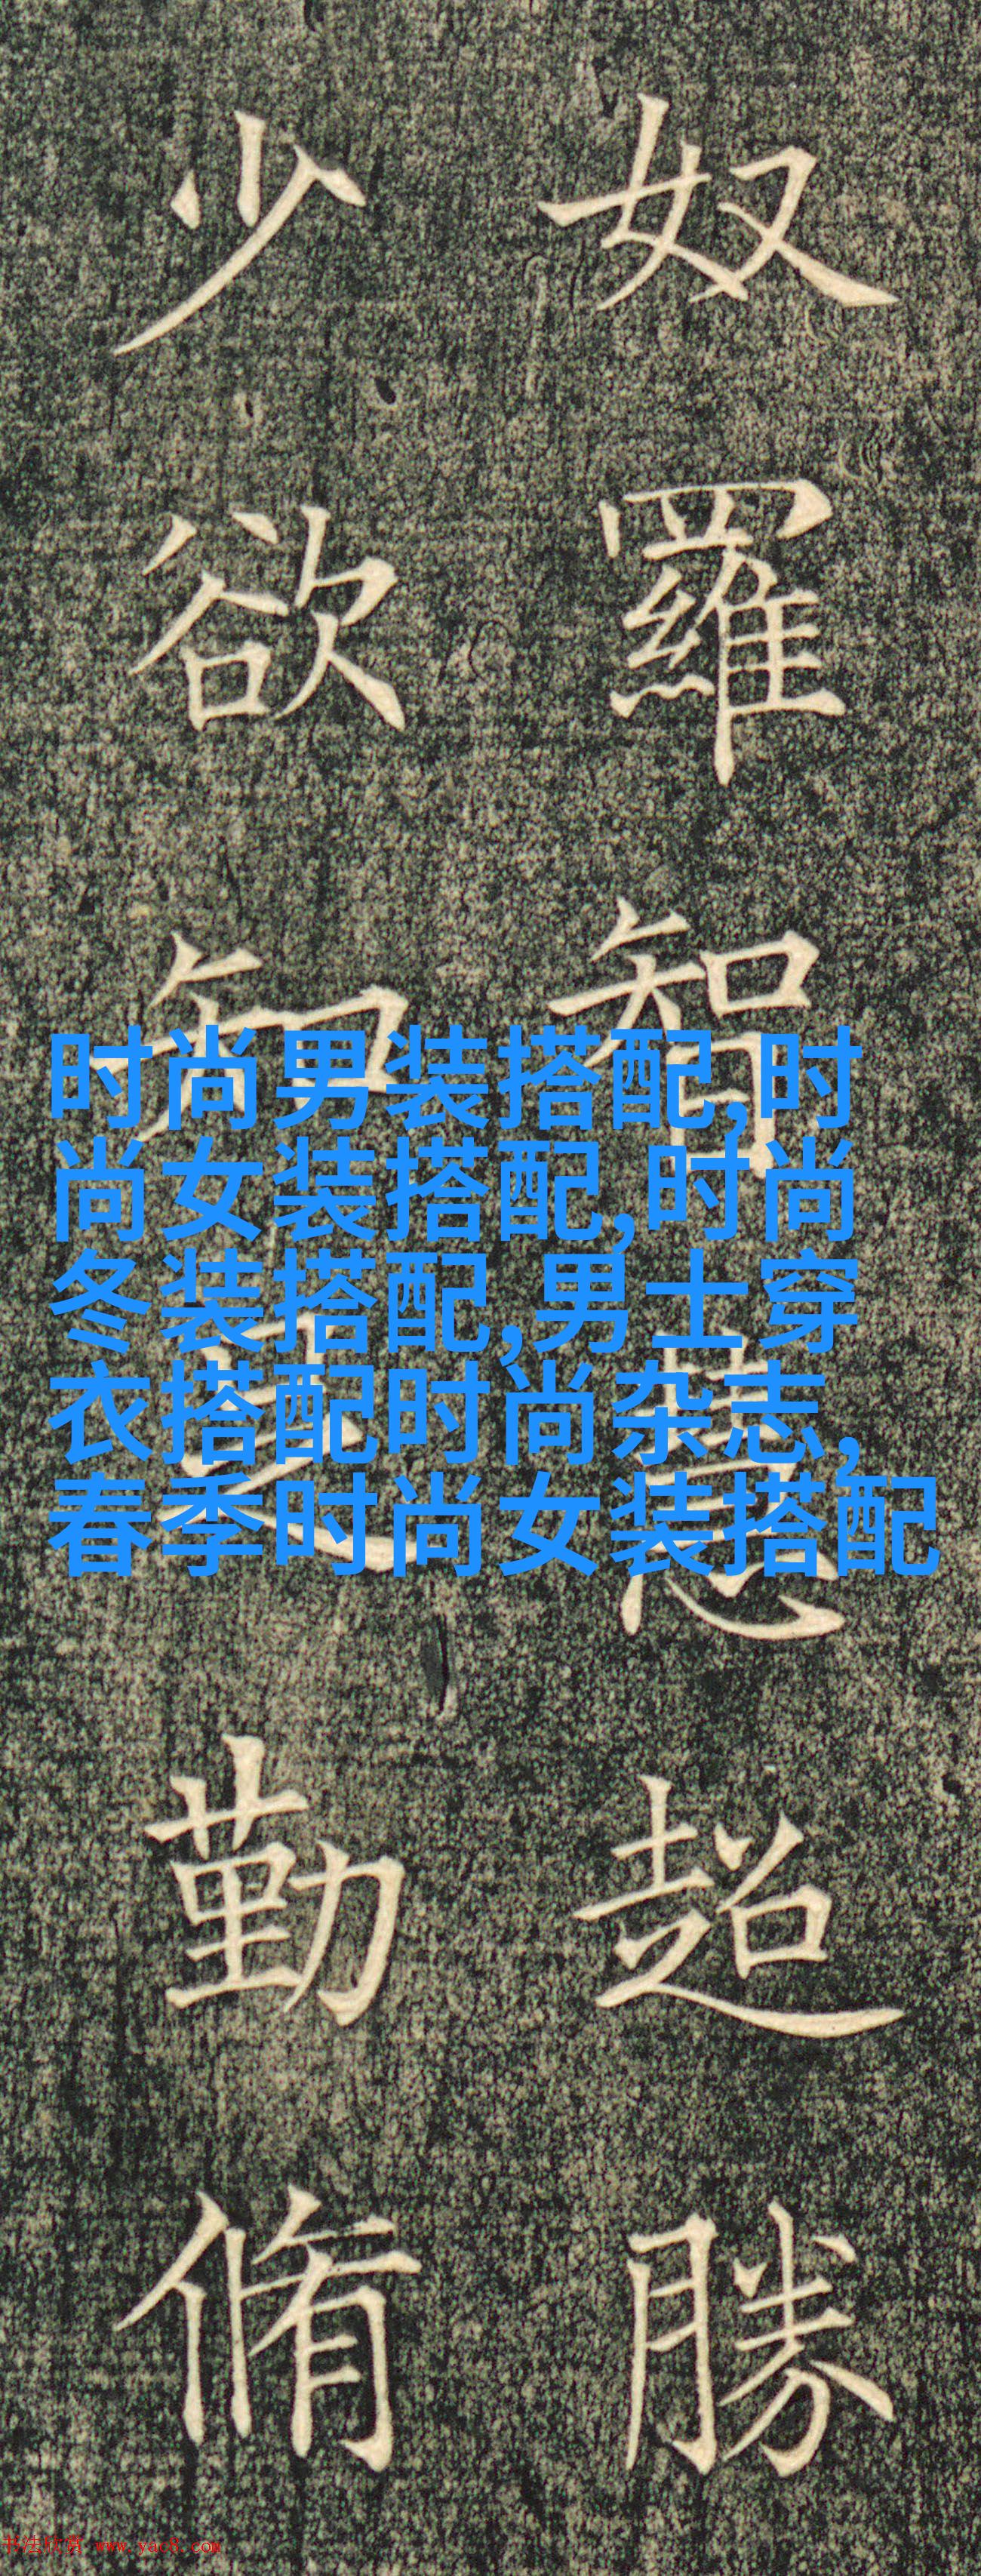 奴羅智慧超勝
少欲知足勤脩
时尚男装搭配,时
尚女装搭配,时尚
冬装搭配,男士穿
衣搭配时尚杂志,
春季时尚女装搭配
书法欣赏 www.yac8.com